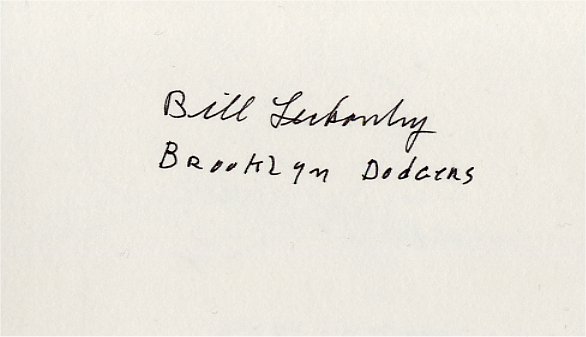 Bill Leckonby
Brooklyn Dodgers